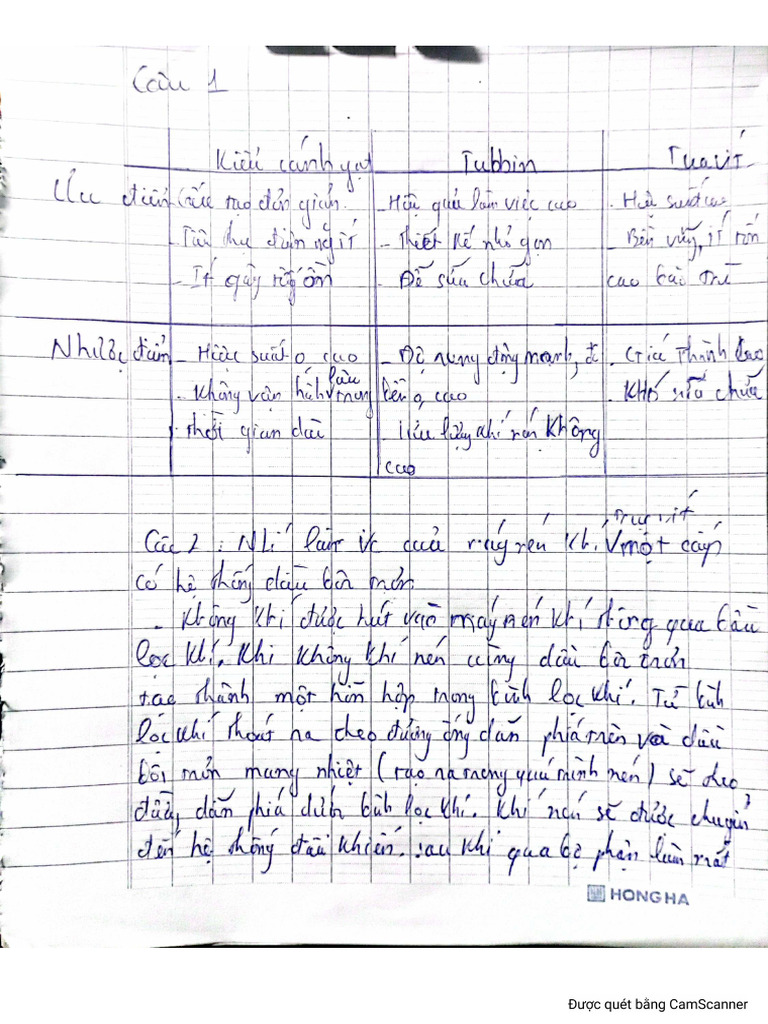 Câu 1
Kiểu cánh gạt Tubbin Trục vít
Ưu điểm Cấu tạo đơn giản. - Hiệu quả làm việc cao - Hiệu suất cao
- Tiêu thụ điện ng ít - Thiết kế nhỏ gọn - Bền vững, ít tốn
- Ít gây tiếng ồn - Dễ sửa chữa cao bảo trì
Nhược điểm - Hiệu suất o cao - Độ rung động mạnh, độ - Giá thành cao
- Không vận hành lâu trong bền o cao - Khó sửa chữa
thời gian dài - lưu lượng khí nén không
cao
Câu 2 : Nlí làm vc của máy nén khí trục vít một cấp
có hệ thống dầu bôi trơn
- Không khí được hút vào máy nén khí thông qua bầu
lọc khí. Khi không khí nén cùng dầu bôi trơn
tạo thành một hỗn hợp trong bình lọc khí. Từ bình
lọc khí thoát ra theo đường ống dẫn phía trên và dầu
bôi trơn mang nhiệt (tạo ra trong quá trình nén) sẽ theo
dẫn phía dưới bình lọc khí. Khí nén sẽ được chuyển
đến hệ thống điều khiển. sau khi qua bộ phận làm mát
HONG HA
Được quét bằng CamScanner